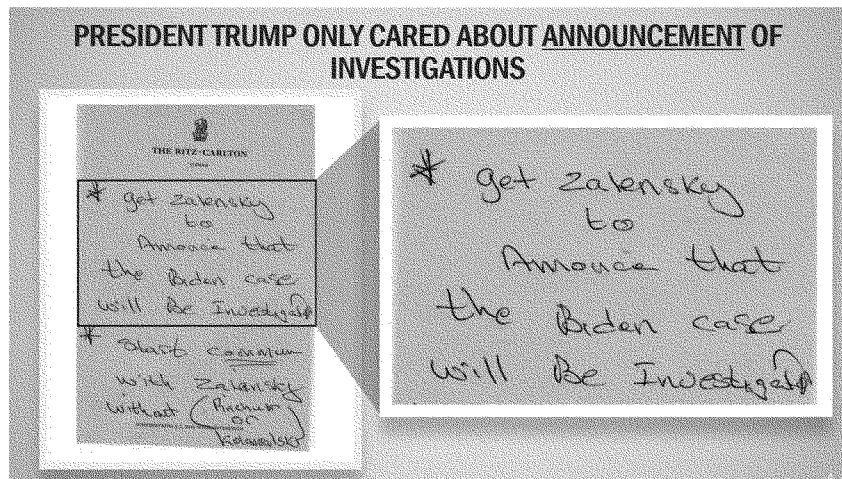 PRESIDENT TRUMP ONLY CARED ABOUT ANNOUNCEMENT OF
INVESTIGATIONS
THE RITZ-CARLTON
* get Zalensky
to
Annouce that
the Biden case
will Be Investigated
* Start commun
with Zalensky
without (Pinchuk
or
Kolomolsky)
* get Zalensky
to
Annouce that
the Biden case
will Be Investigated